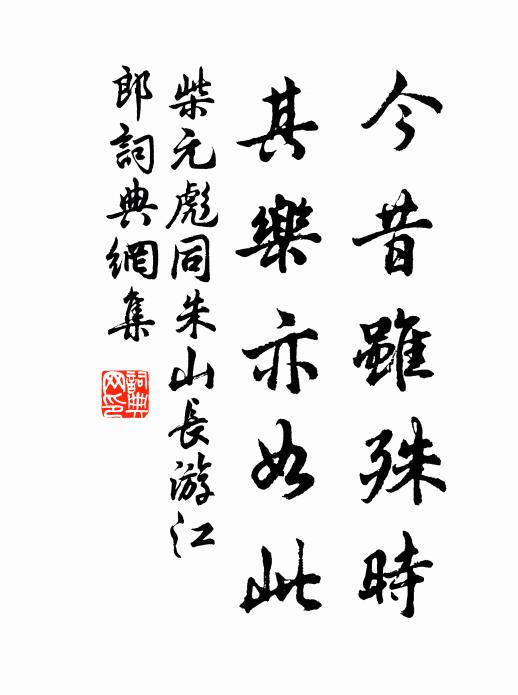 今昔雖殊時
其樂亦如此
柴元彪同朱山長游江
郎詞典網集
詞典网印